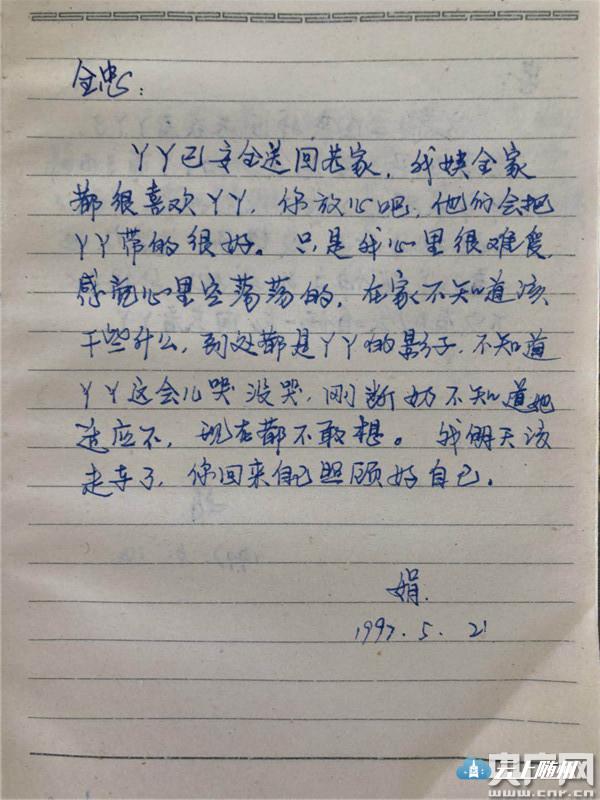 全忠：
丫丫已安全送回老家，我姨全家
都很喜欢丫丫，你放心吧，他们会把
丫丫带的很好。只是我心里很难受，
感觉心里空荡荡的，在家不知道该
干些什么，到处都是丫丫的影子，不知道
丫丫这会儿哭没哭，刚断奶不知道她
适应不，现在都不敢想。我明天该
走车了，你回来自己照顾好自己。
娟.
1997.5.21
云上随州
央广网
www.cnr.cn